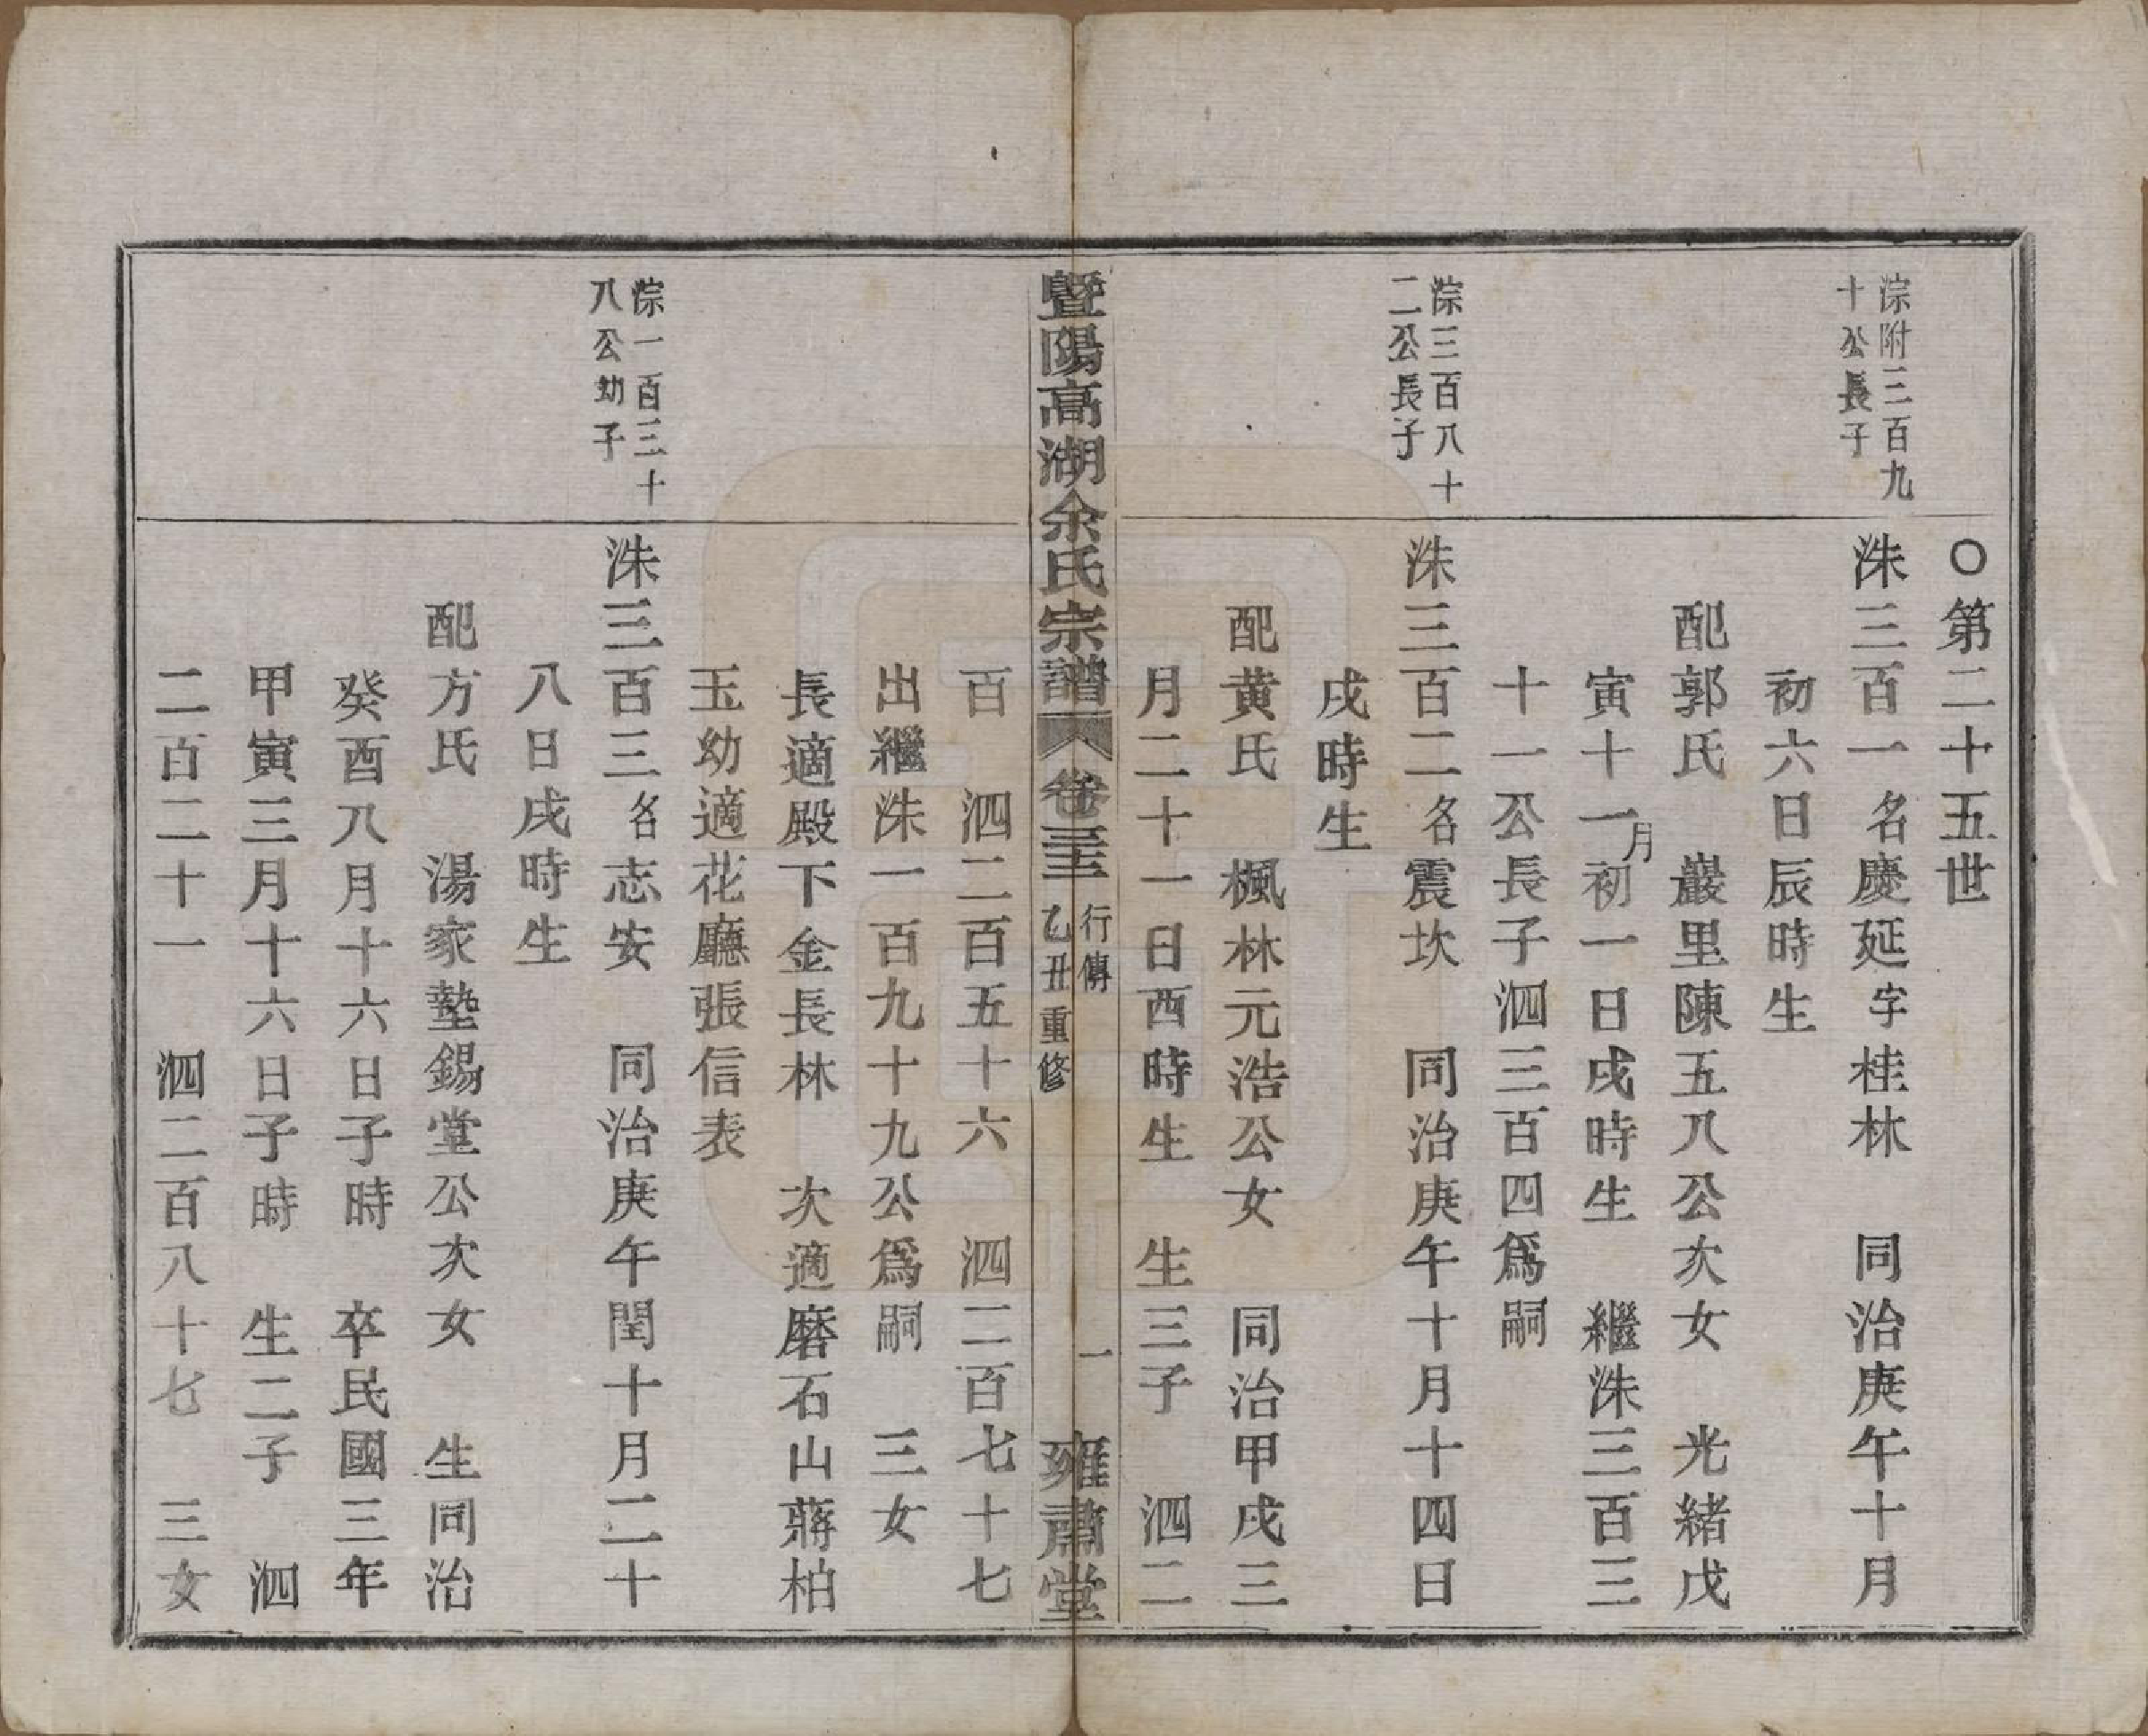 ○第二十五世
淙附三百九
十公長子
洙三百一名慶延字桂林　同治庚午十月
初六日辰時生
配郭氏　巖里陳五八公次女　光緒戊
寅十一月初一日戌時生　繼洙三百三
十一公長子泗三百四爲嗣
淙三百八十
二公長子
洙三百二名震坎　同治庚午十月十四日
戌時生
配黄氏　楓林元浩公女　同治甲戌三
月二十一日酉時生　生三子　泗二
暨陽高湖余氏宗譜
卷三十三
行傳
乙丑重修
一
雍肅堂
百　泗二百五十六　泗二百七十七
出繼洙一百九十九公爲嗣　三女
長適殿下金長林　次適磨石山蔣柏
玉幼適花廳張信表
淙一百三十
八公幼子
洙三百三名志安　同治庚午閏十月二十
八日戌時生
配方氏　湯家墊錫堂公次女　生同治
癸酉八月十六日子時　卒民國三年
甲寅三月十六日子時　生二子　泗
二百二十一　泗二百八十七　三女